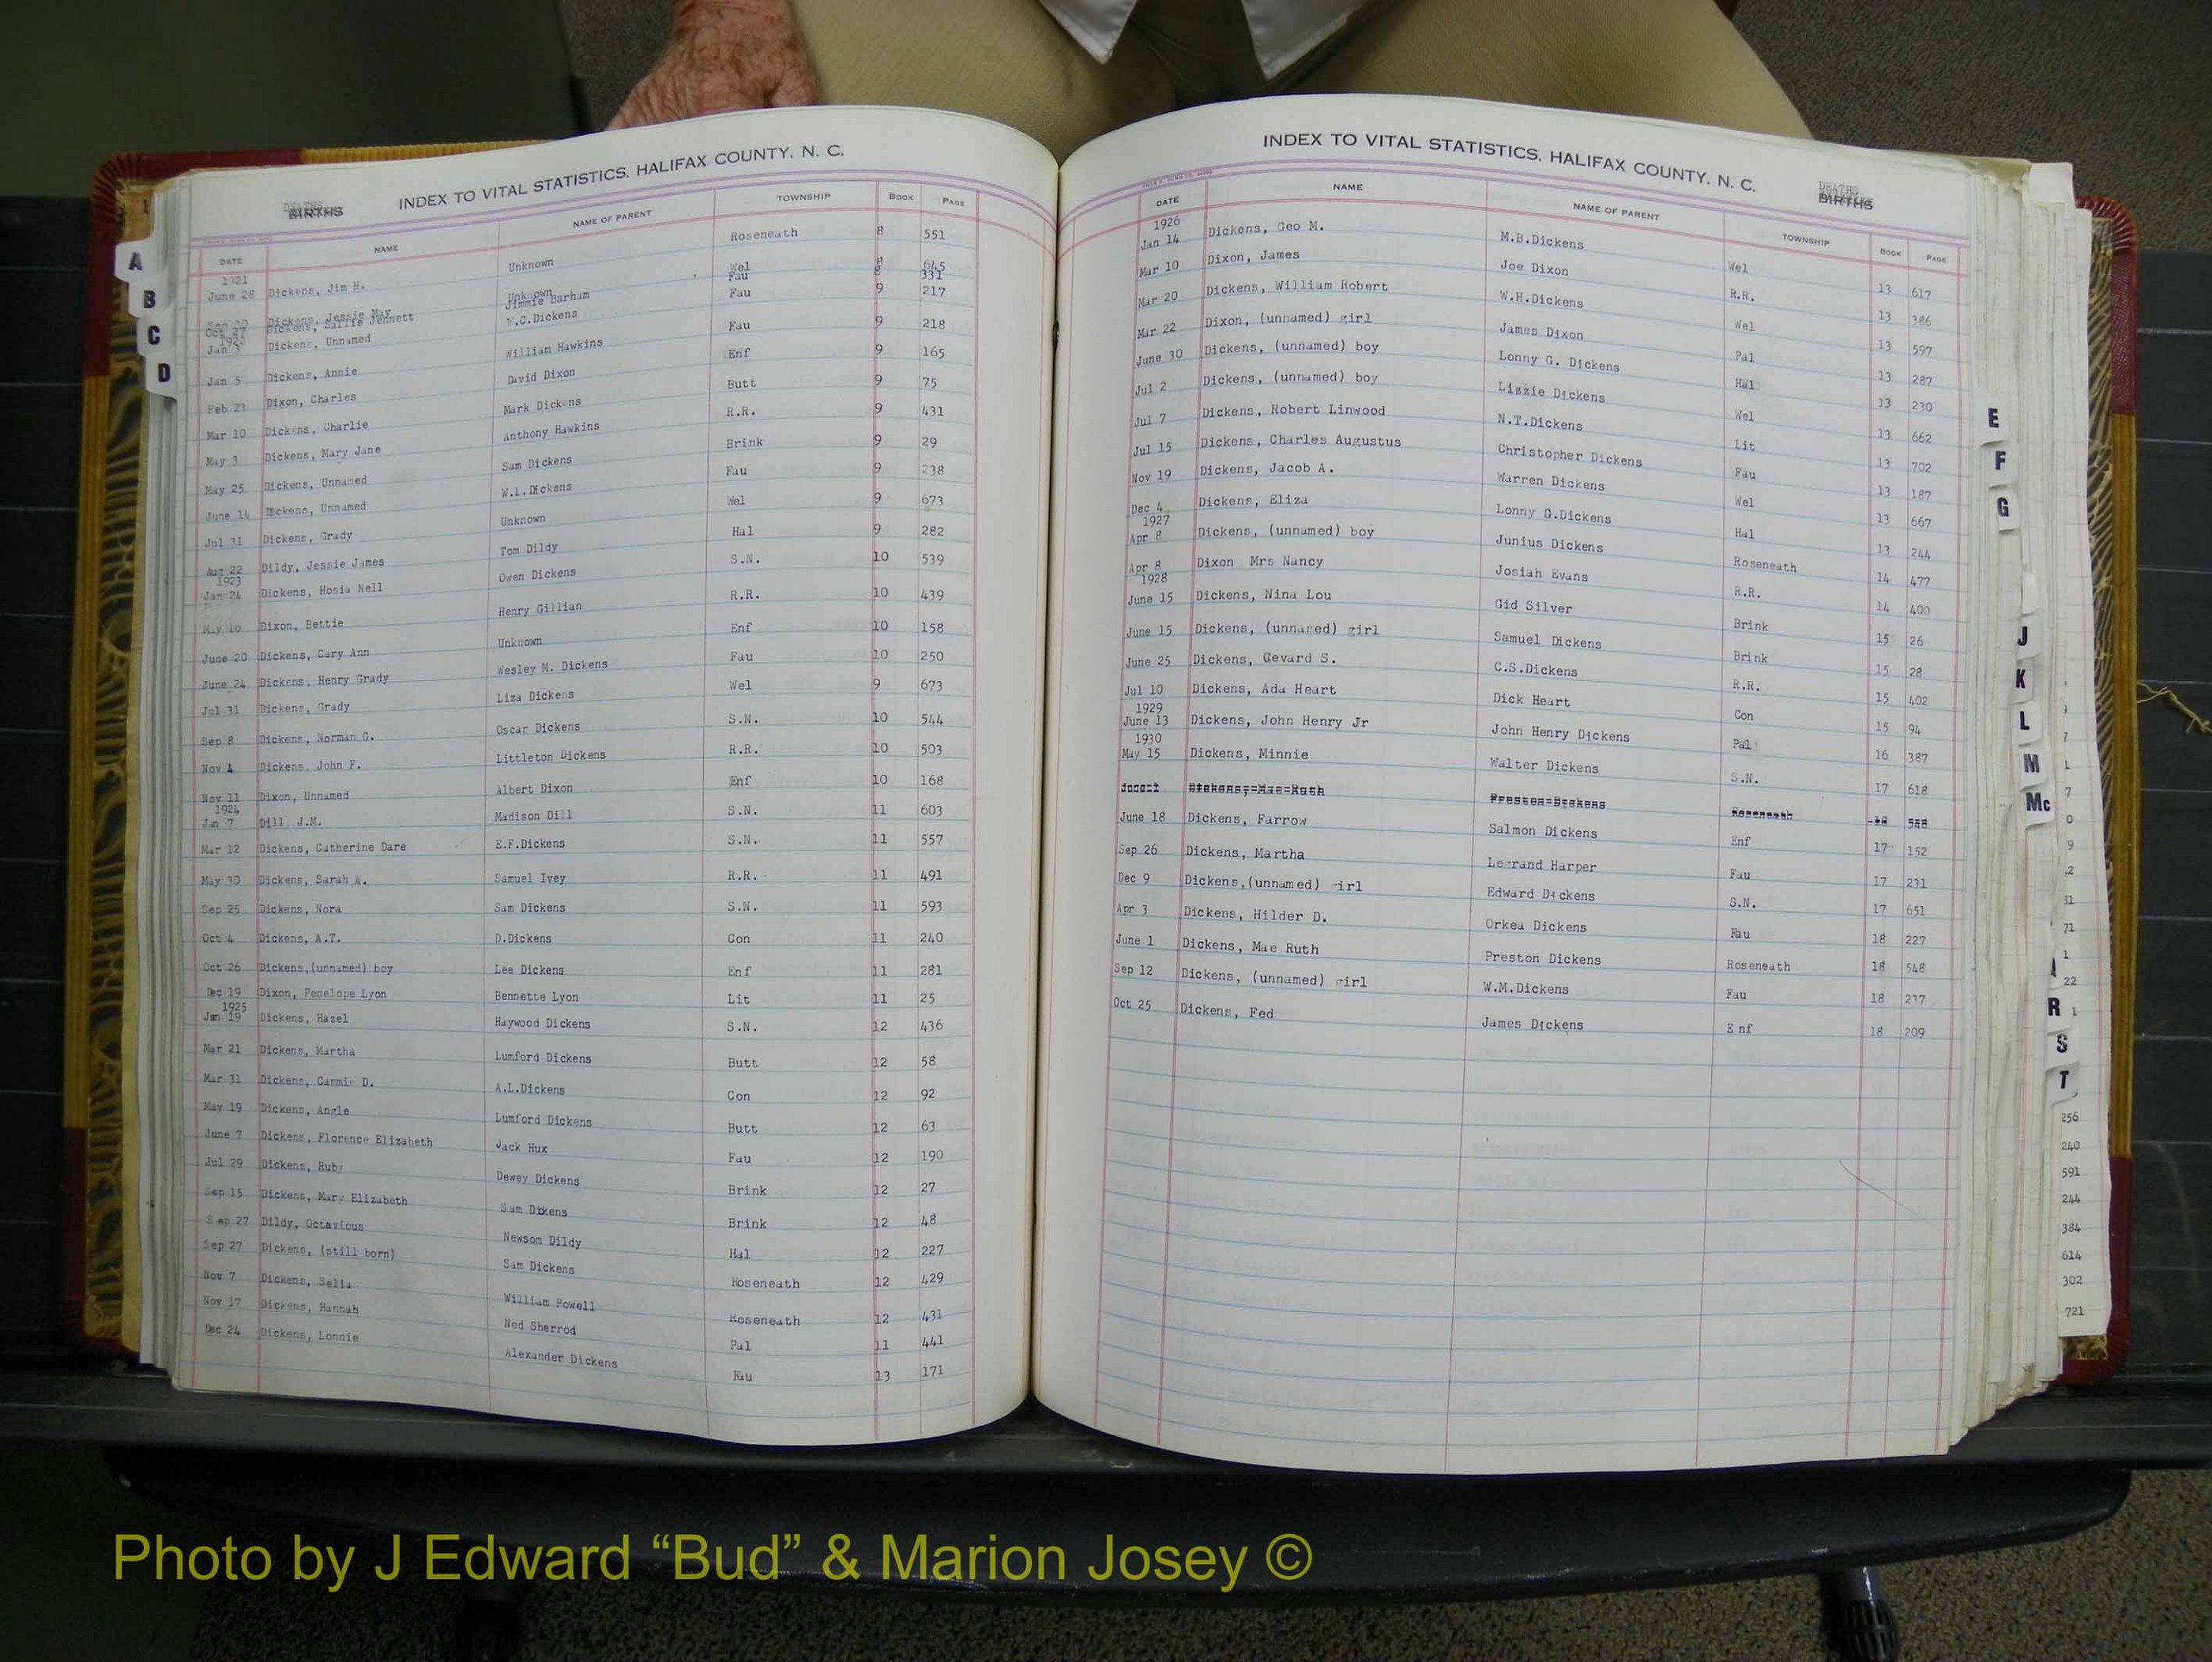 INDEX TO VITAL STATISTICS, HALIFAX COUNTY, N. C.
DEATHS
BIRTHS
DATE NAME NAME OF PARENT TOWNSHIP BOOK PAGE
1921
June 28 Dickens, Jim H. Unknown Roseneath 8 551
Dickens, Jessie May Unknown Wel 8 645
Oct 27 Dickens, Sallie Jennett Jimmie Barham Fau 8 331
1922
Jan 3 Dickens, Unnamed W.C.Dickens Fau 9 217
Jan 5 Dickens, Annie William Hawkins Fau 9 218
Feb 23 Dixon, Charles David Dixon Enf 9 165
Mar 10 Dickens, Charlie Mark Dickens Butt 9 75
May 3 Dickens, Mary Jane Anthony Hawkins R.R. 9 431
May 25 Dickens, Unnamed Sam Dickens Brink 9 29
June 14 Dickens, Unnamed W.L.Dickens Fau 9 238
Jul 31 Dickens, Grady Unknown Wel 9 673
Aug 22 Dildy, Jessie James Tom Dildy Hal 9 282
1923
Jan 24 Dickens, Hosia Nell Owen Dickens S.N. 10 539
May 16 Dixon, Bettie Henry Gillian R.R. 10 439
June 20 Dickens, Cary Ann Unknown Enf 10 158
June 24 Dickens, Henry Grady Wesley M. Dickens Fau 10 250
Jul 31 Dickens, Grady Liza Dickens Wel 9 673
Sep 8 Dickens, Norman G. Oscar Dickens S.N. 10 544
Nov 4 Dickens, John F. Littleton Dickens R.R. 10 503
Nov 11 Dixon, Unnamed Albert Dixon Enf 10 168
1924
Jan 7 Dill, J.M. Madison Dill S.N. 11 603
Mar 12 Dickens, Catherine Dare E.F.Dickens S.N. 11 557
May 30 Dickens, Sarah A. Samuel Ivey R.R. 11 491
Sep 25 Dickens, Nora Sam Dickens S.N. 11 593
Oct 4 Dickens, A.T. D.Dickens Con 11 240
Oct 26 Dickens,(unnamed) boy Lee Dickens Enf 11 281
Dec 19 Dixon, Penelope Lyon Bennette Lyon Lit 11 25
1925
Jan 19 Dickens, Hazel Haywood Dickens S.N. 12 436
Mar 21 Dickens, Martha Lumford Dickens Butt 12 58
Mar 31 Dickens, Cammie D. A.L.Dickens Con 12 92
May 19 Dickens, Angle Lumford Dickens Butt 12 63
June 7 Dickens, Florence Elizabeth Jack Hux Fau 12 190
Jul 29 Dickens, Ruby Dewey Dickens Brink 12 27
Sep 15 Dickens, Mary Elizabeth Sam Dikens Brink 12 48
Sep 27 Dildy, Octavious Newsom Dildy Hal 12 227
Sep 27 Dickens, (still born) Sam Dickens Roseneath 12 429
Nov 7 Dickens, Selia William Powell Roseneath 12 431
Nov 17 Dickens, Hannah Ned Sherrod Pal 11 441
Dec 24 Dickens, Lonnie Alexander Dickens Fau 13 171
A
B
C
D
INDEX TO VITAL STATISTICS, HALIFAX COUNTY, N. C.
DEATHS
BIRTHS
DATE NAME NAME OF PARENT TOWNSHIP BOOK PAGE
1926
Jan 14 Dickens, Geo M. M.B.Dickens Wel 13 617
Mar 10 Dixon, James Joe Dixon R.R. 13 386
Mar 20 Dickens, William Robert W.H.Dickens Wel 13 597
Mar 22 Dixon, (unnamed) girl James Dixon Pal 13 287
June 30 Dickens, (unnamed) boy Lonny G. Dickens Hal 13 230
Jul 2 Dickens, (unnamed) boy Lizzie Dickens Wel 13 662
Jul 7 Dickens, Robert Linwood N.T.Dickens Lit 13 702
Jul 15 Dickens, Charles Augustus Christopher Dickens Fau 13 187
Nov 19 Dickens, Jacob A. Warren Dickens Wel 13 667
Dec 4 Dickens, Eliza Lonny G.Dickens Hal 13 244
1927
Apr 8 Dickens, (unnamed) boy Junius Dickens Roseneath 14 477
Apr 8 Dixon Mrs Nancy Josiah Evans R.R. 14 400
1928
June 15 Dickens, Nina Lou Gid Silver Brink 15 26
June 15 Dickens, (unnamed) girl Samuel Dickens Brink 15 28
June 25 Dickens, Gevard S. C.S.Dickens R.R. 15 402
Jul 10 Dickens, Ada Heart Dick Heart Con 15 94
1929
June 13 Dickens, John Henry Jr John Henry Dickens Pal 16 387
1930
May 15 Dickens, Minnie Walter Dickens S.N. 17 618
Dickens, Mae Ruth Preston Dickens Roseneath
June 18 Dickens, Farrow Salmon Dickens Enf 17 152
Sep 26 Dickens, Martha Legrand Harper Fau 17 231
Dec 9 Dickens,(unnamed) girl Edward Dickens S.N. 17 651
Apr 3 Dickens, Hilder D. Orkea Dickens Fau 18 227
June 1 Dickens, Mae Ruth Preston Dickens Roseneath 18 548
Sep 12 Dickens, (unnamed) girl W.M.Dickens Fau 18 237
Oct 25 Dickens, Fed James Dickens Enf 18 209
E
F
G
J
K
L
M
Mc
R
S
T
22
256
240
591
244
384
614
302
721
Photo by J Edward “Bud” & Marion Josey ©